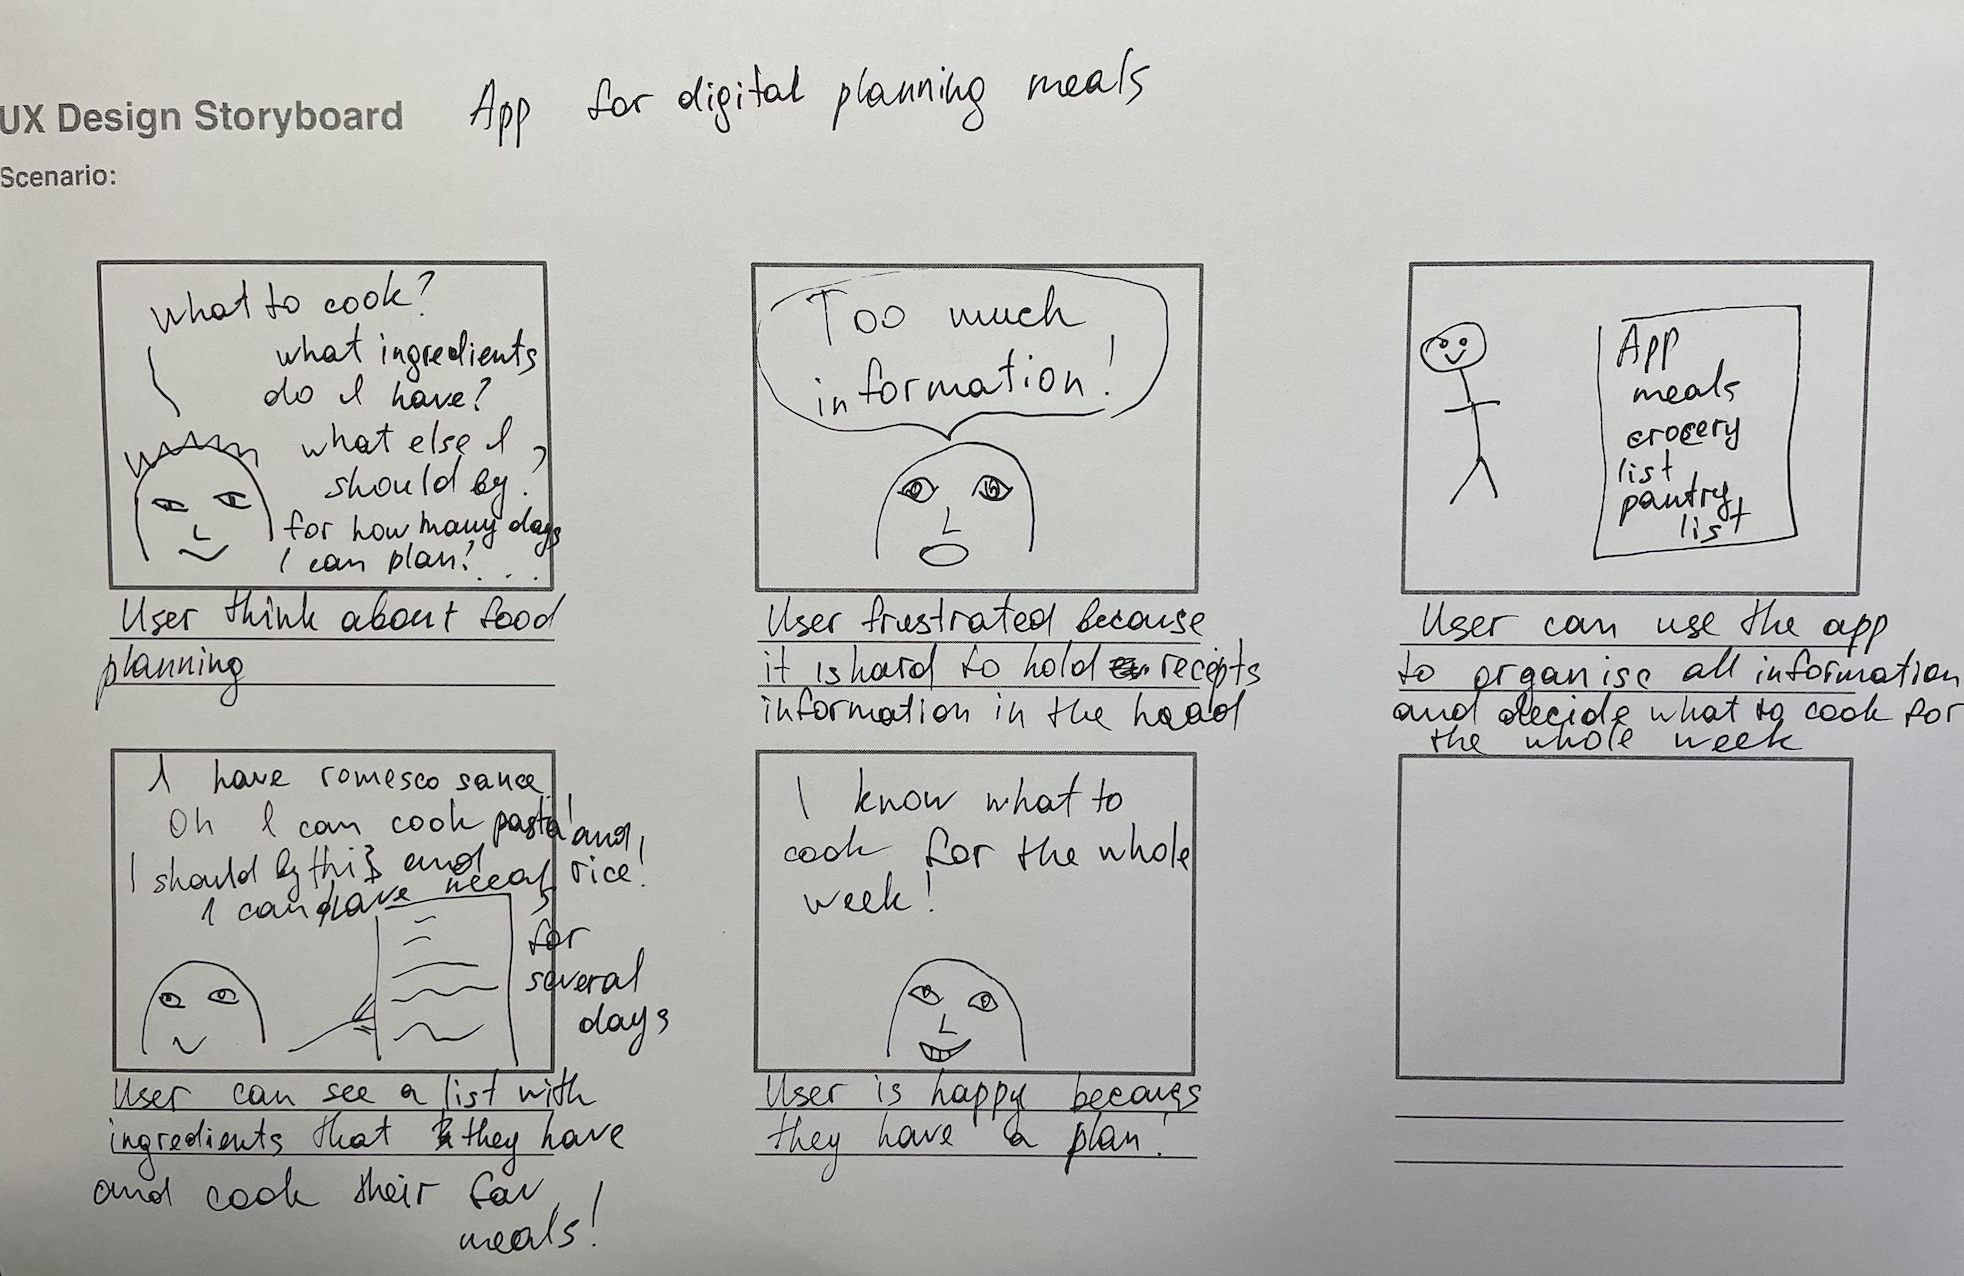 UX Design Storyboard App for digital planning meals
Scenario:
What to cook?
what ingredients
do I have?
what else I
should by?
for how many days
I can plan? ...
User think about food
planning
Too much
information!
User frustrated because
it is hard to hold recepts
information in the head
App
meals
crocery
list
pantry
list
User can use the app
to organise all information
and decide what to cook for
the whole week
I have romesco sauce
Oh I can cook pasta! and
I should by this and rice!
I can have meals
for
several
days
User can see a list with
ingredients that they have
and cook their fav
meals!
I know what to
cook for the whole
week!
User is happy becouys
they have a plan!